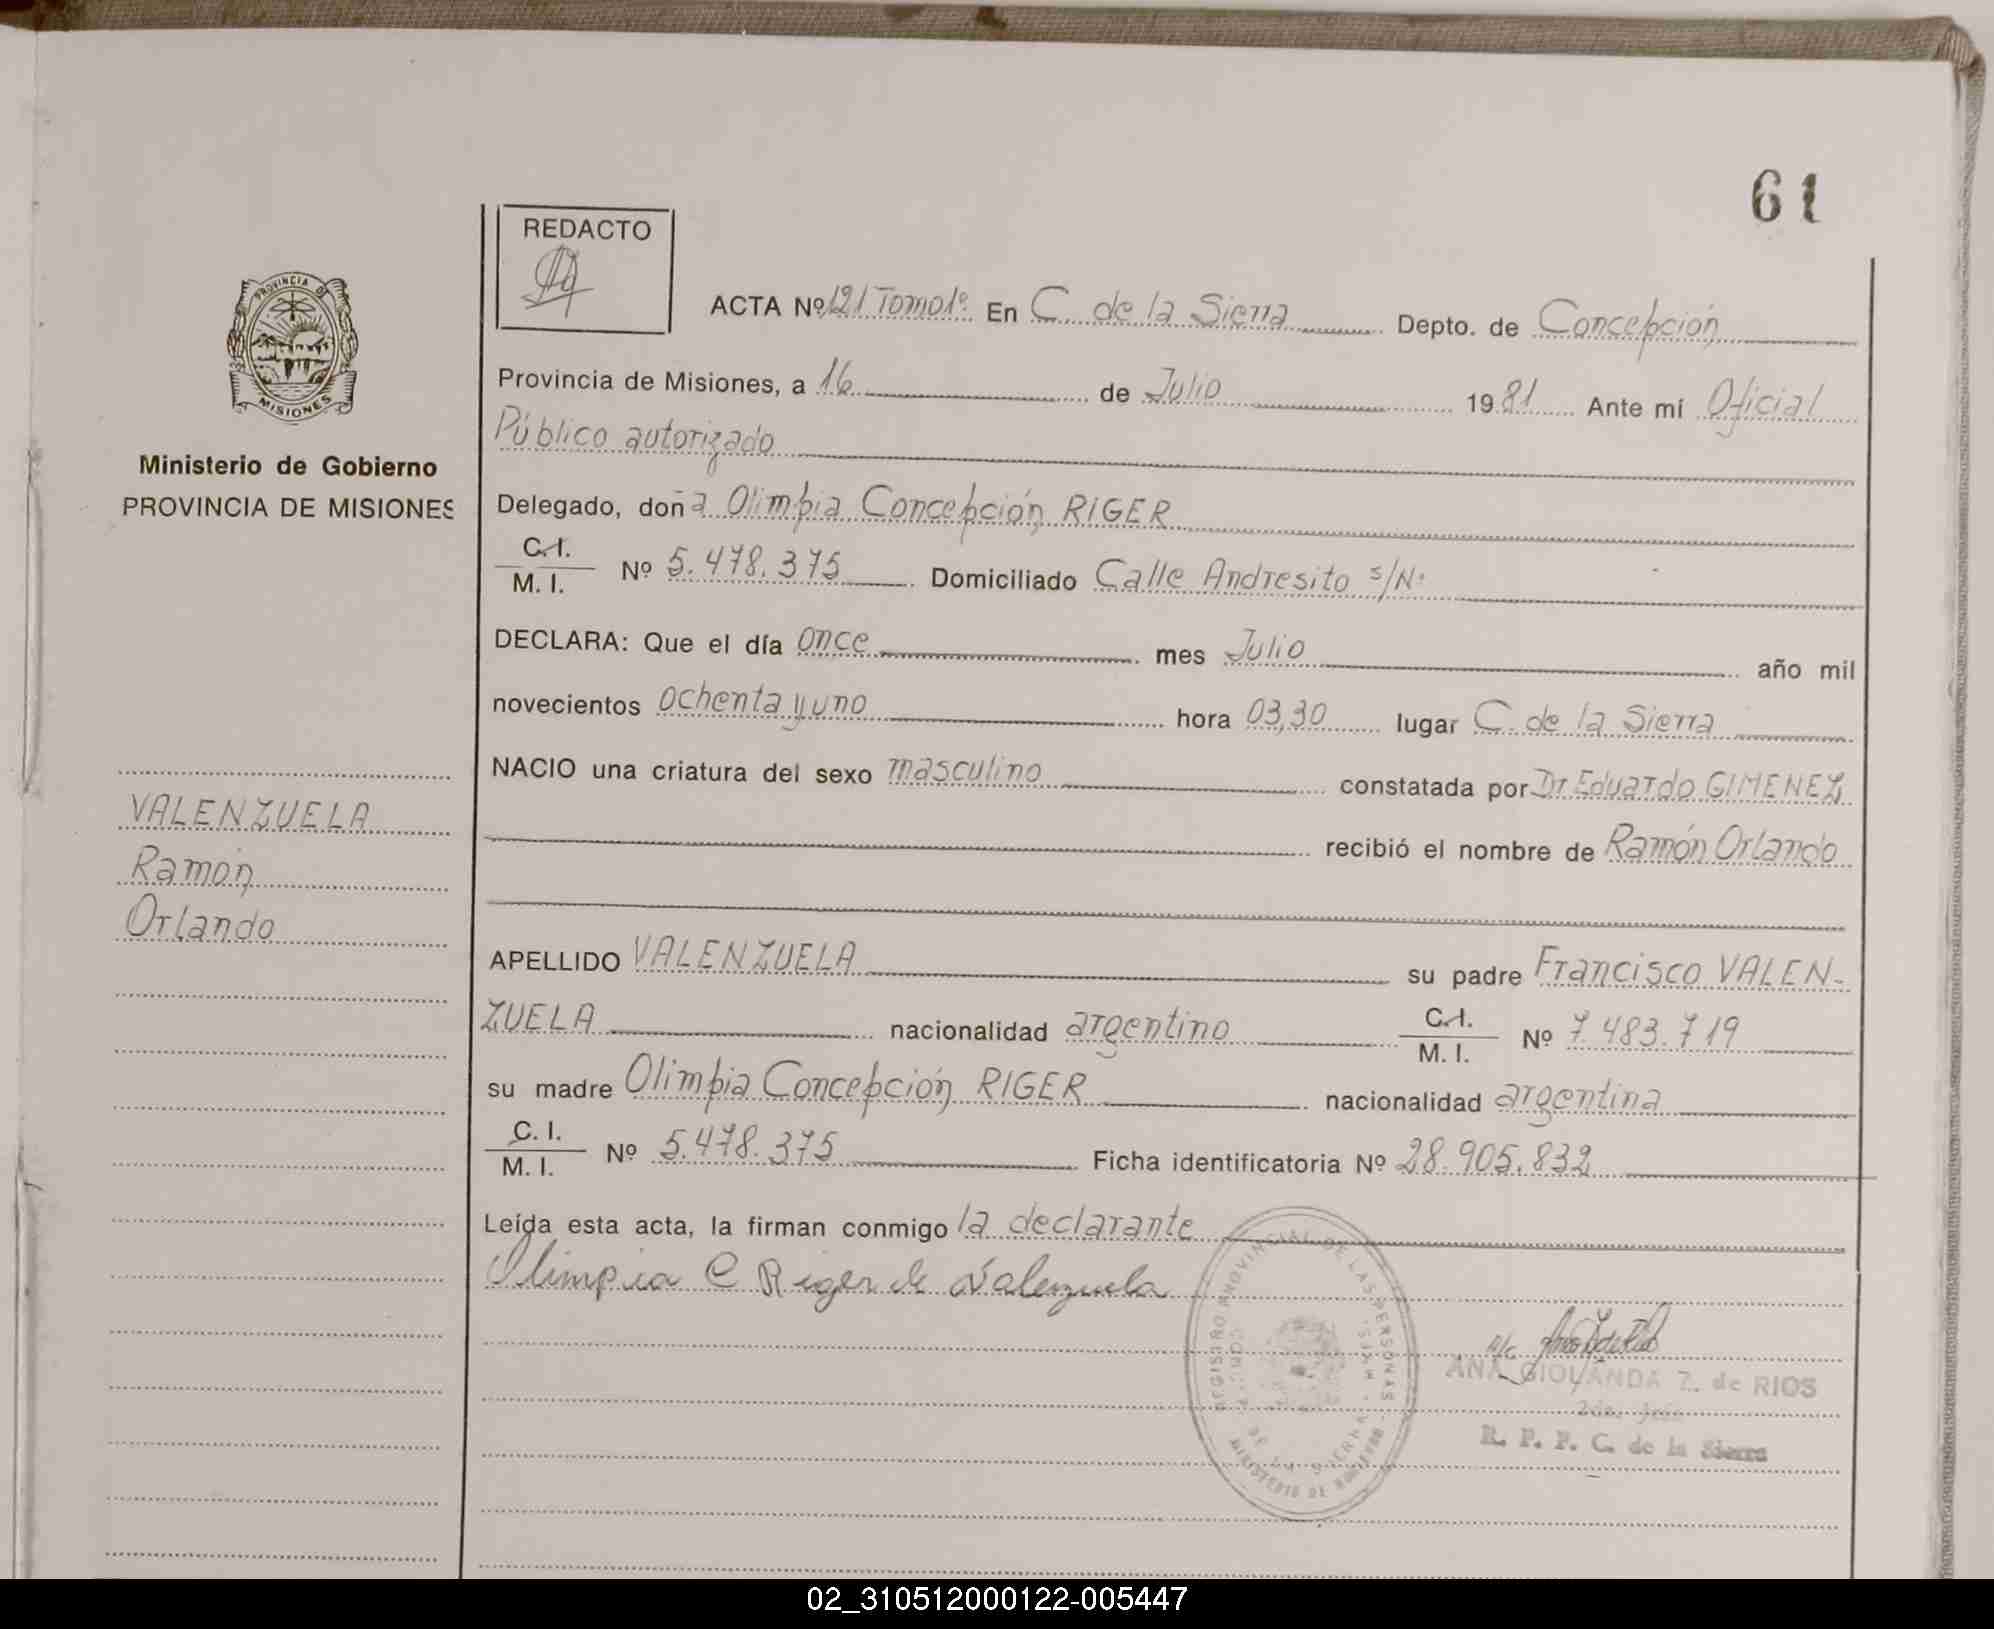 61
REDACTO
PROVINCIA DE
MISIONES
Ministerio de Gobierno
PROVINCIA DE MISIONES
VALENZUELA
Ramón
Orlando
ACTA Nº 121 Tomo 1º En C. de la Sierra Depto. de Concepción
Provincia de Misiones, a 16 de Julio 1981 Ante mí Oficial
Público autorizado
Delegado, doña Olimpia Concepción RIGER
C.I.
M. I. Nº 5.478.375 Domiciliado Calle Andresito s/N.
DECLARA: Que el día once mes Julio año mil
novecientos ochenta y uno hora 03,30 lugar C. de la Sierra
NACIO una criatura del sexo masculino constatada por Dr Eduardo GIMENEZ
recibió el nombre de Ramón Orlando
APELLIDO VALENZUELA su padre Francisco VALEN-
ZUELA nacionalidad argentino C.I. M. I. Nº 7.483.719
su madre Olimpia Concepción RIGER nacionalidad argentina
C. I.
M. I. Nº 5.478.375 Ficha identificatoria Nº 28.905.832
Leída esta acta, la firman conmigo la declarante
Olimpia C Riger de Valenzuela
REGISTRO PROVINCIAL DE LAS PERSONAS
MINISTERIO DE GOBIERNO
DE LA SIERRA
ANA GIOLANDA Z. de RIOS
R. P. P. C. de la Sierra
02_310512000122-005447